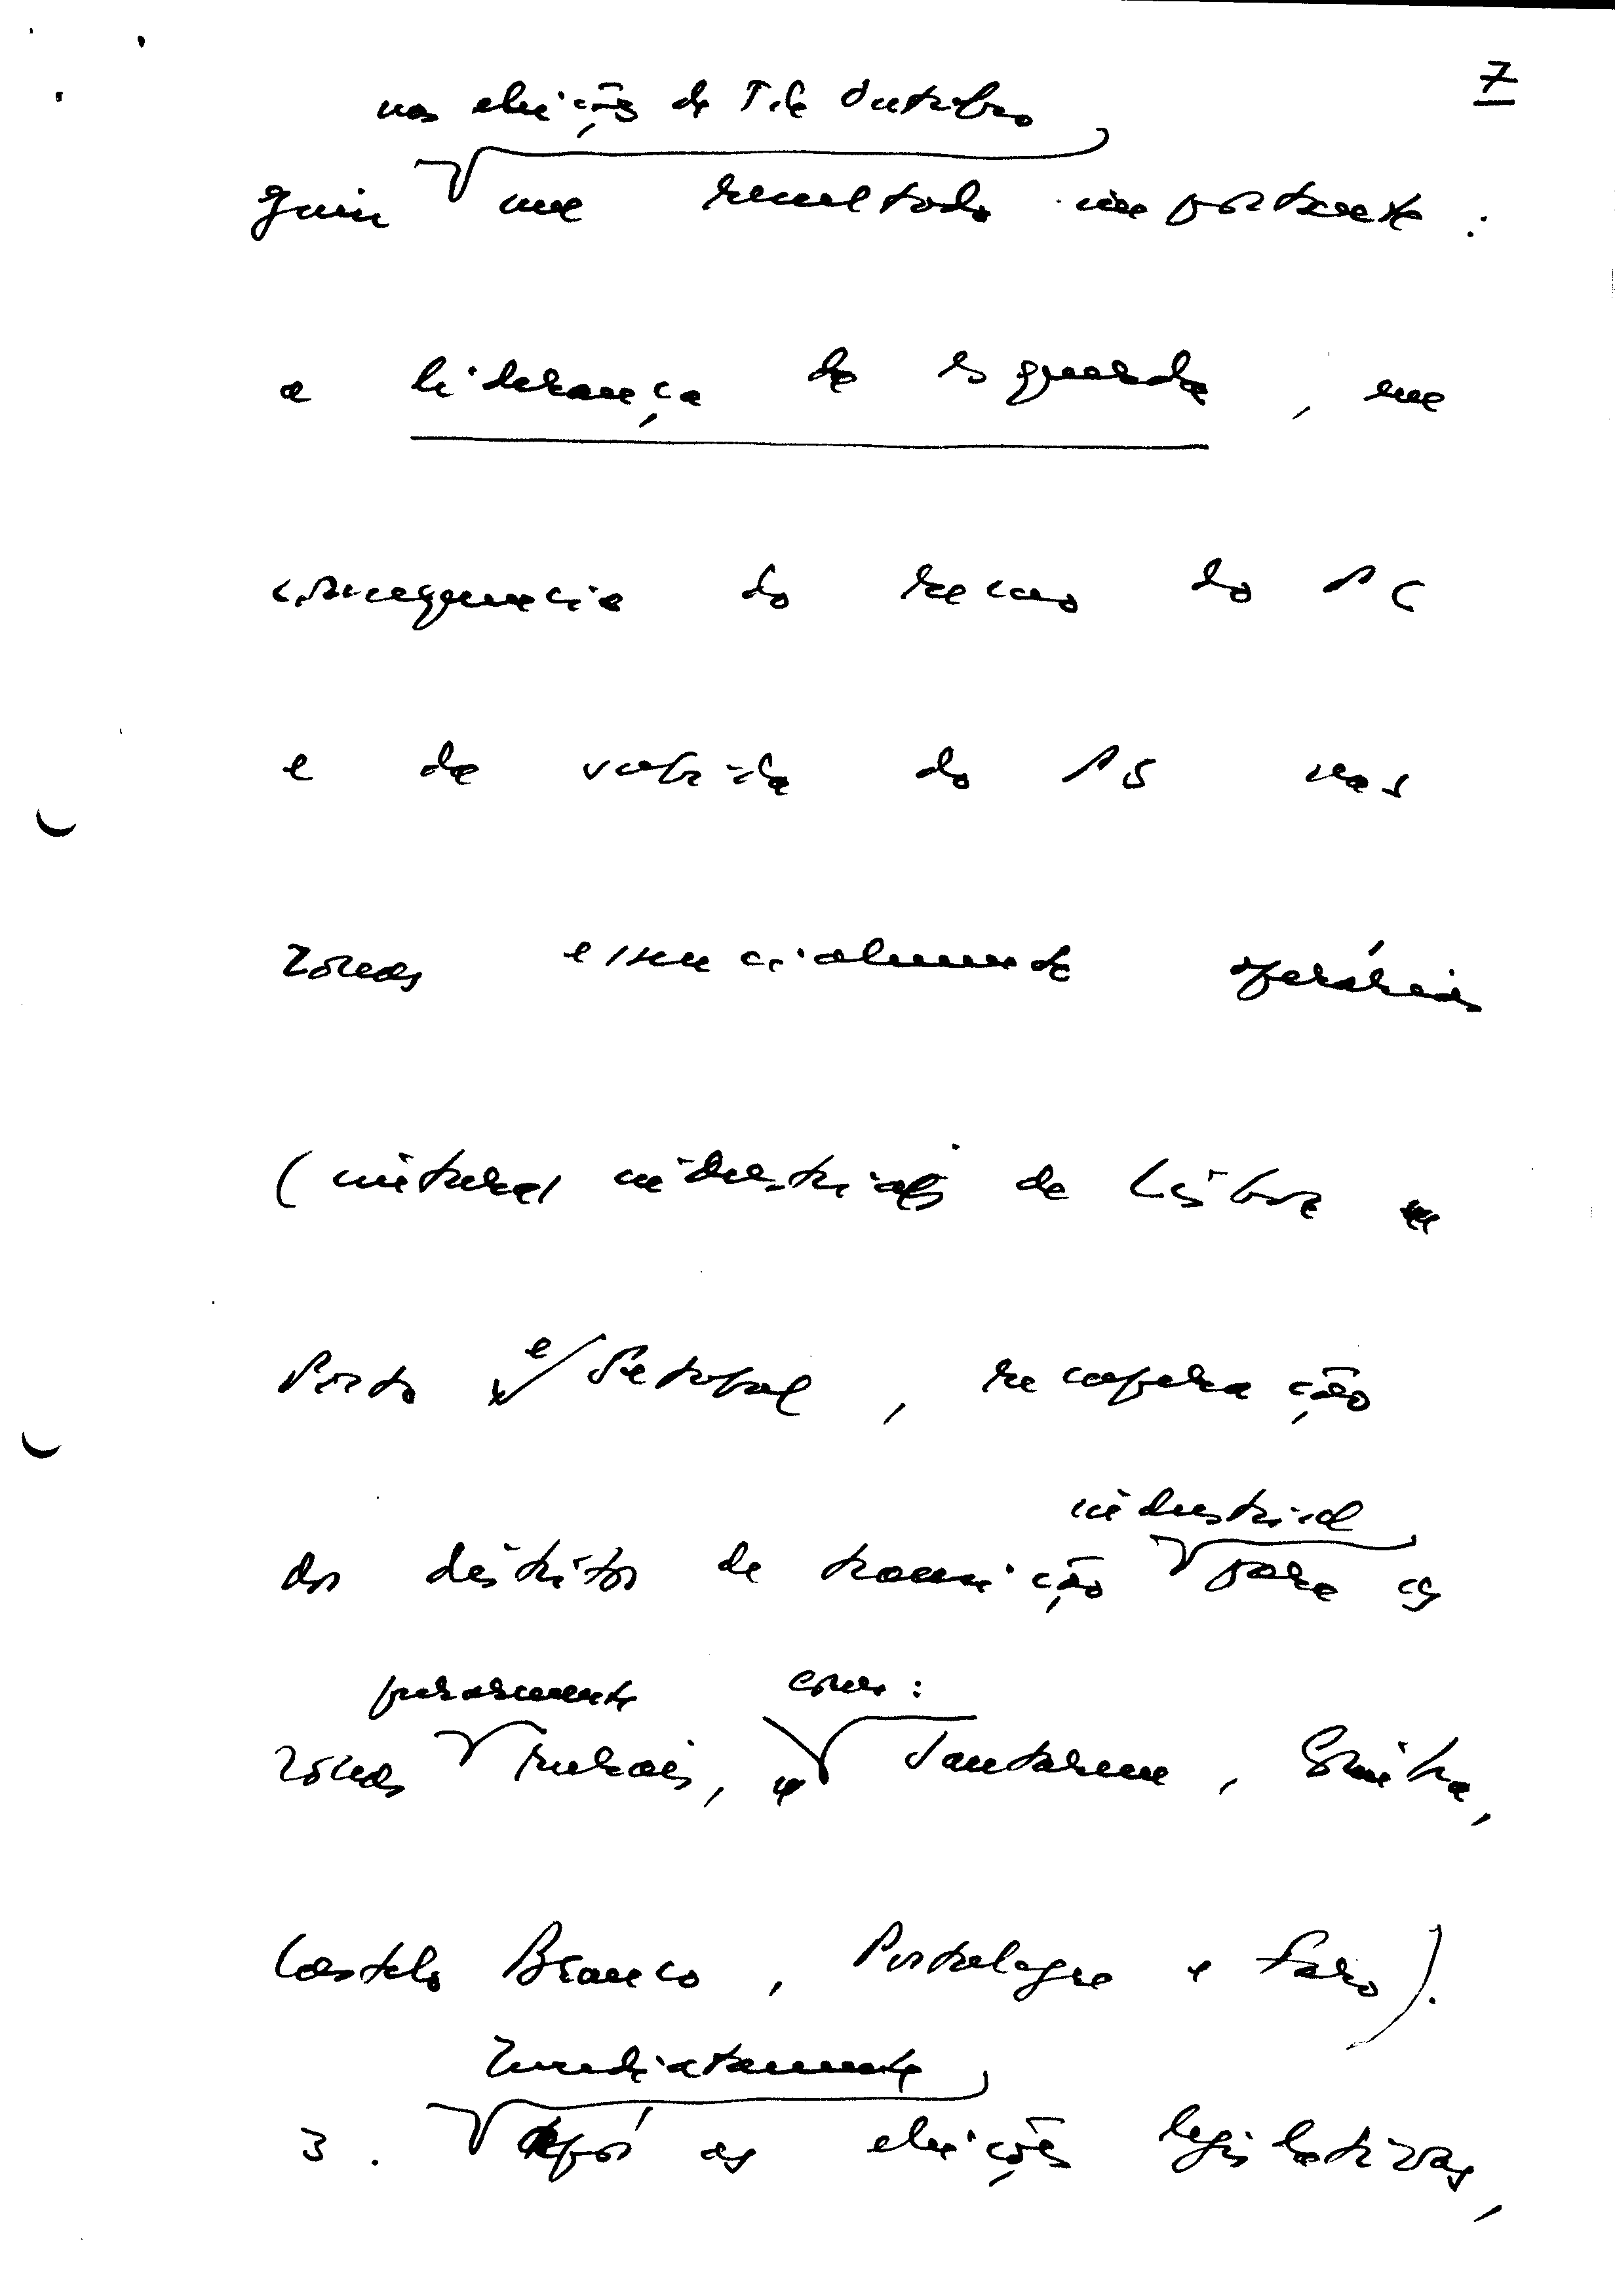 7
nas eleições de 1 de Outubro
guiu um resultado importante :
a liderança da esquerda, em
consequencia do recuo do PC
e da subida do PS nas
zonas essencialmente operárias
(cinturas industriais de Lisboa
Porto e Setubal, recuperação
industrial
dos distritos de transição para as
puramente como:
zonas rurais, Santarem, Sintra,
Castelo Branco, Portalegre e Faro).
Imediatamente
3. após as eleições legislativas,